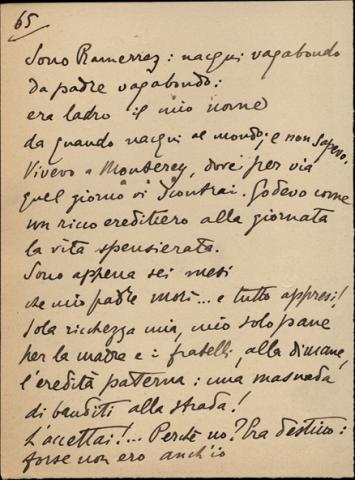 65
Sono Ramerrez: nacqui vagabondo
da padre vagabondo:
era ladro il mio nome
da quando nacqui al mondo; e non sapevo.
Vivevo a Monterey, dove per via
quel giorno vi scontrai. Godevo come
un ricco ereditiero alla giornata
la vita spensierata.
Sono appena sei mesi
che mio padre morì... e tutto appresi!
Sola ricchezza mia, mio solo pane
per la madre e i fratelli, alla dimane,
l'eredità paterna: una masnada
di banditi alla strada!
L'accettai!... Perchè no? Era destino:
forse non ero anch'io